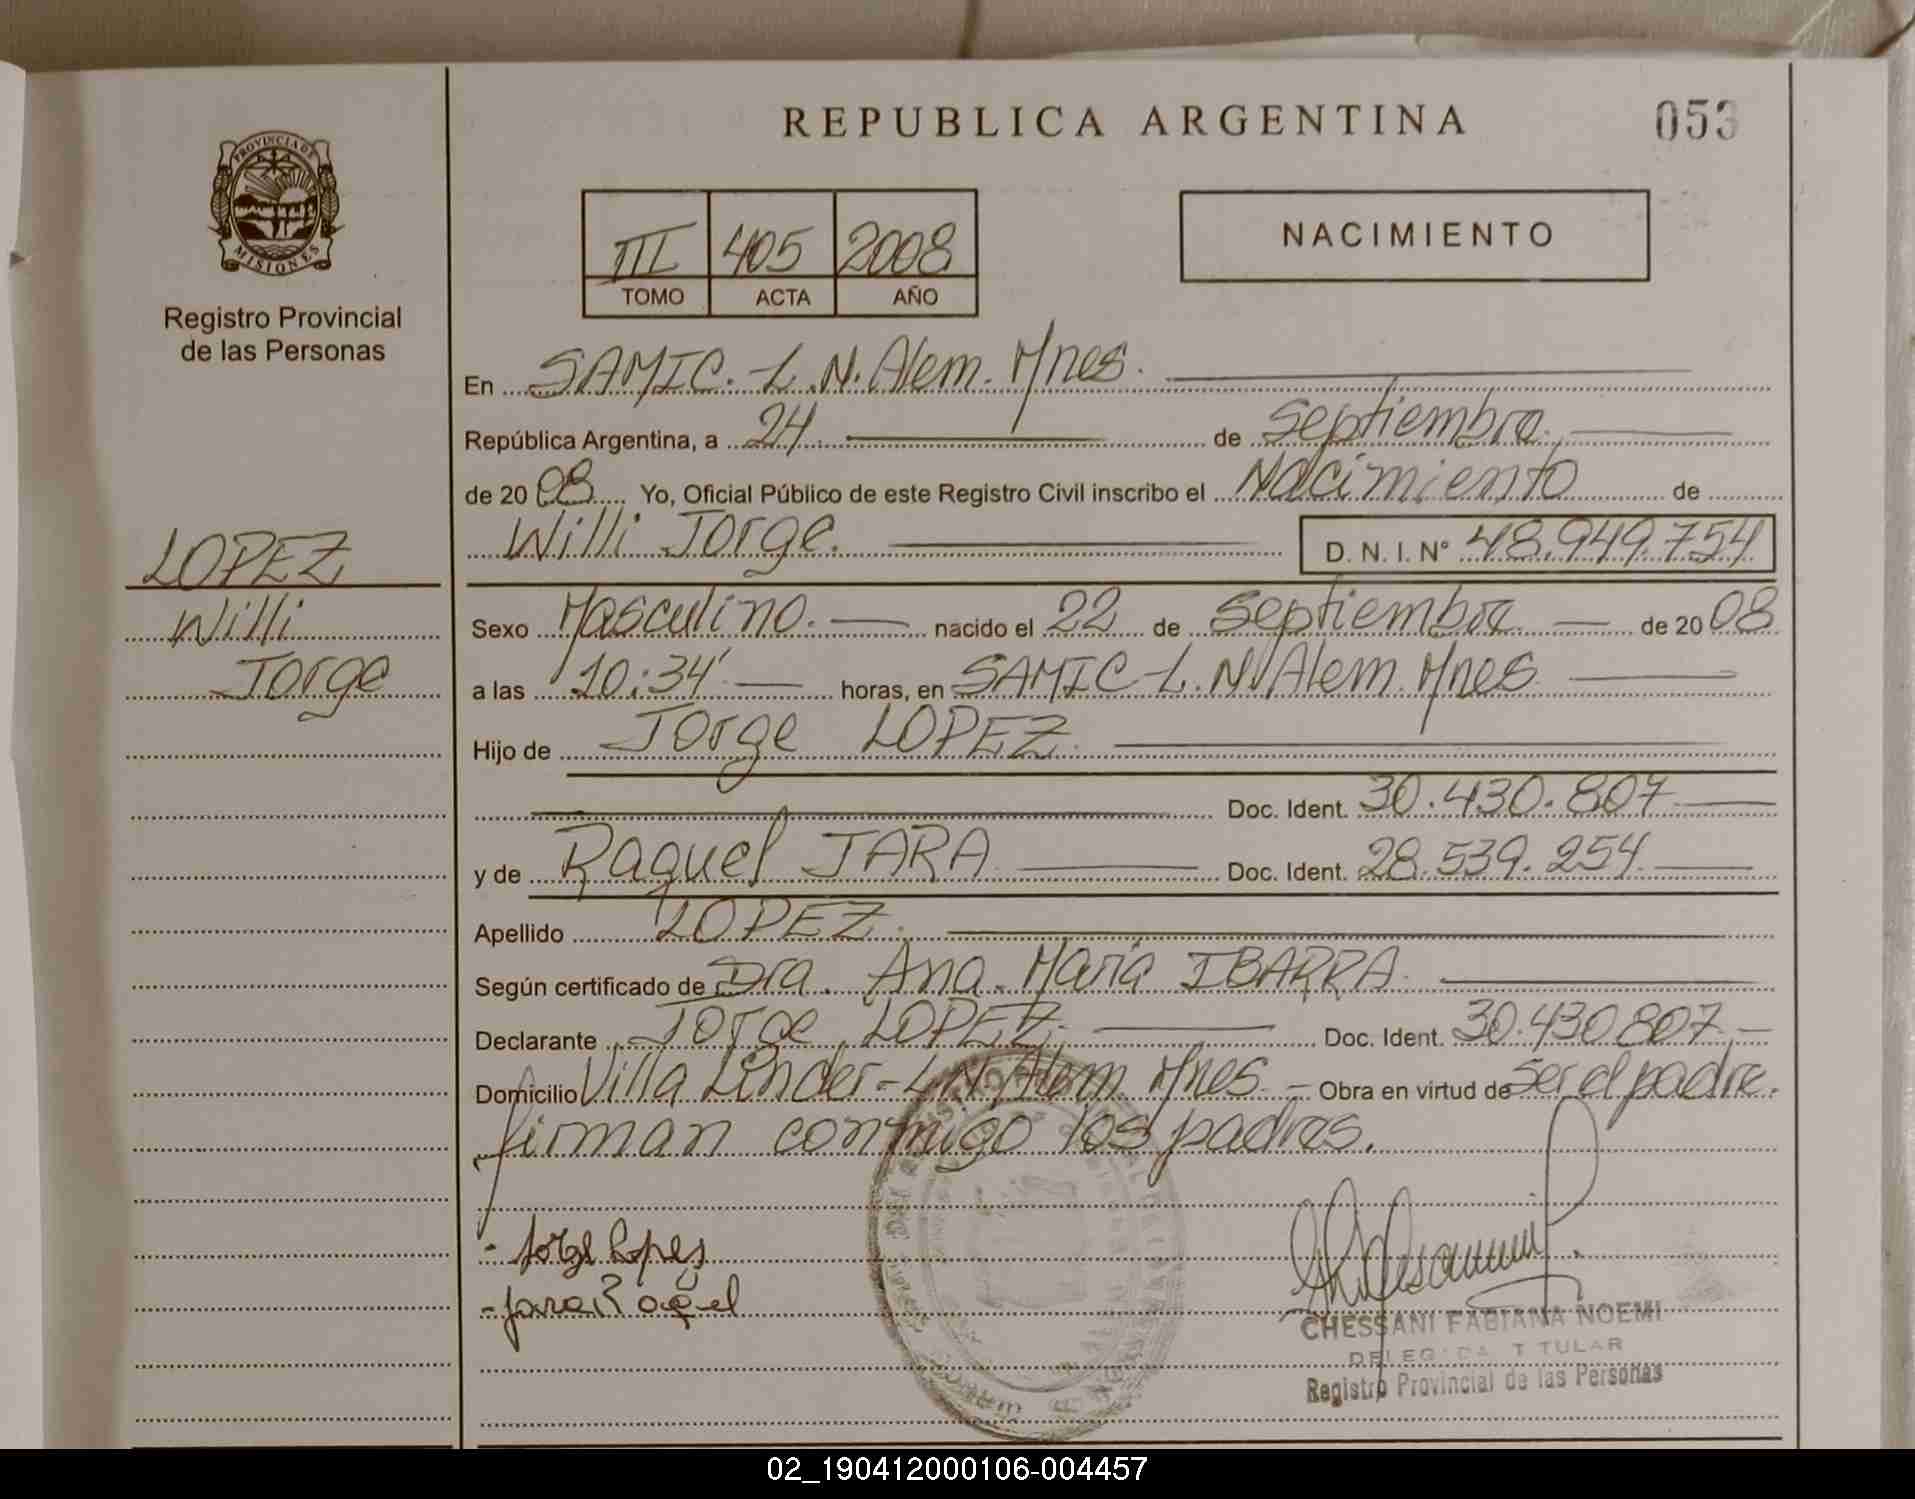 REPUBLICA ARGENTINA
053
PROVINCIA DE
MISIONES
Registro Provincial
de las Personas
III 405 2008
TOMO ACTA AÑO
NACIMIENTO
En SAMIC. L.N. Alem. Mnes.
República Argentina, a 24 de septiembre
de 2008 Yo, Oficial Público de este Registro Civil inscribo el Nacimiento de
Willi Jorge. D. N. I. Nº 48.949.754
LOPEZ
Willi
Jorge
Sexo Masculino. nacido el 22 de septiembre de 2008
a las 10:34' horas, en SAMIC-L.N.Alem. Mnes
Hijo de Jorge LOPEZ.
Doc. Ident. 30.430.807
y de Raquel JARA Doc. Ident. 28.539.254
Apellido LOPEZ.
Según certificado de Dra. Ana María IBARRA.
Declarante Jorge LOPEZ. Doc. Ident. 30.430.807
Domicilio Villa Linder-L.N.Alem. Mnes. Obra en virtud de ser el padre.
firman conmigo los padres.
- Jorge Lopes
- Jara Raquel
CHESSANI FABIANA NOEMI
DELEGADA TITULAR
Registro Provincial de las Personas
02_190412000106-004457